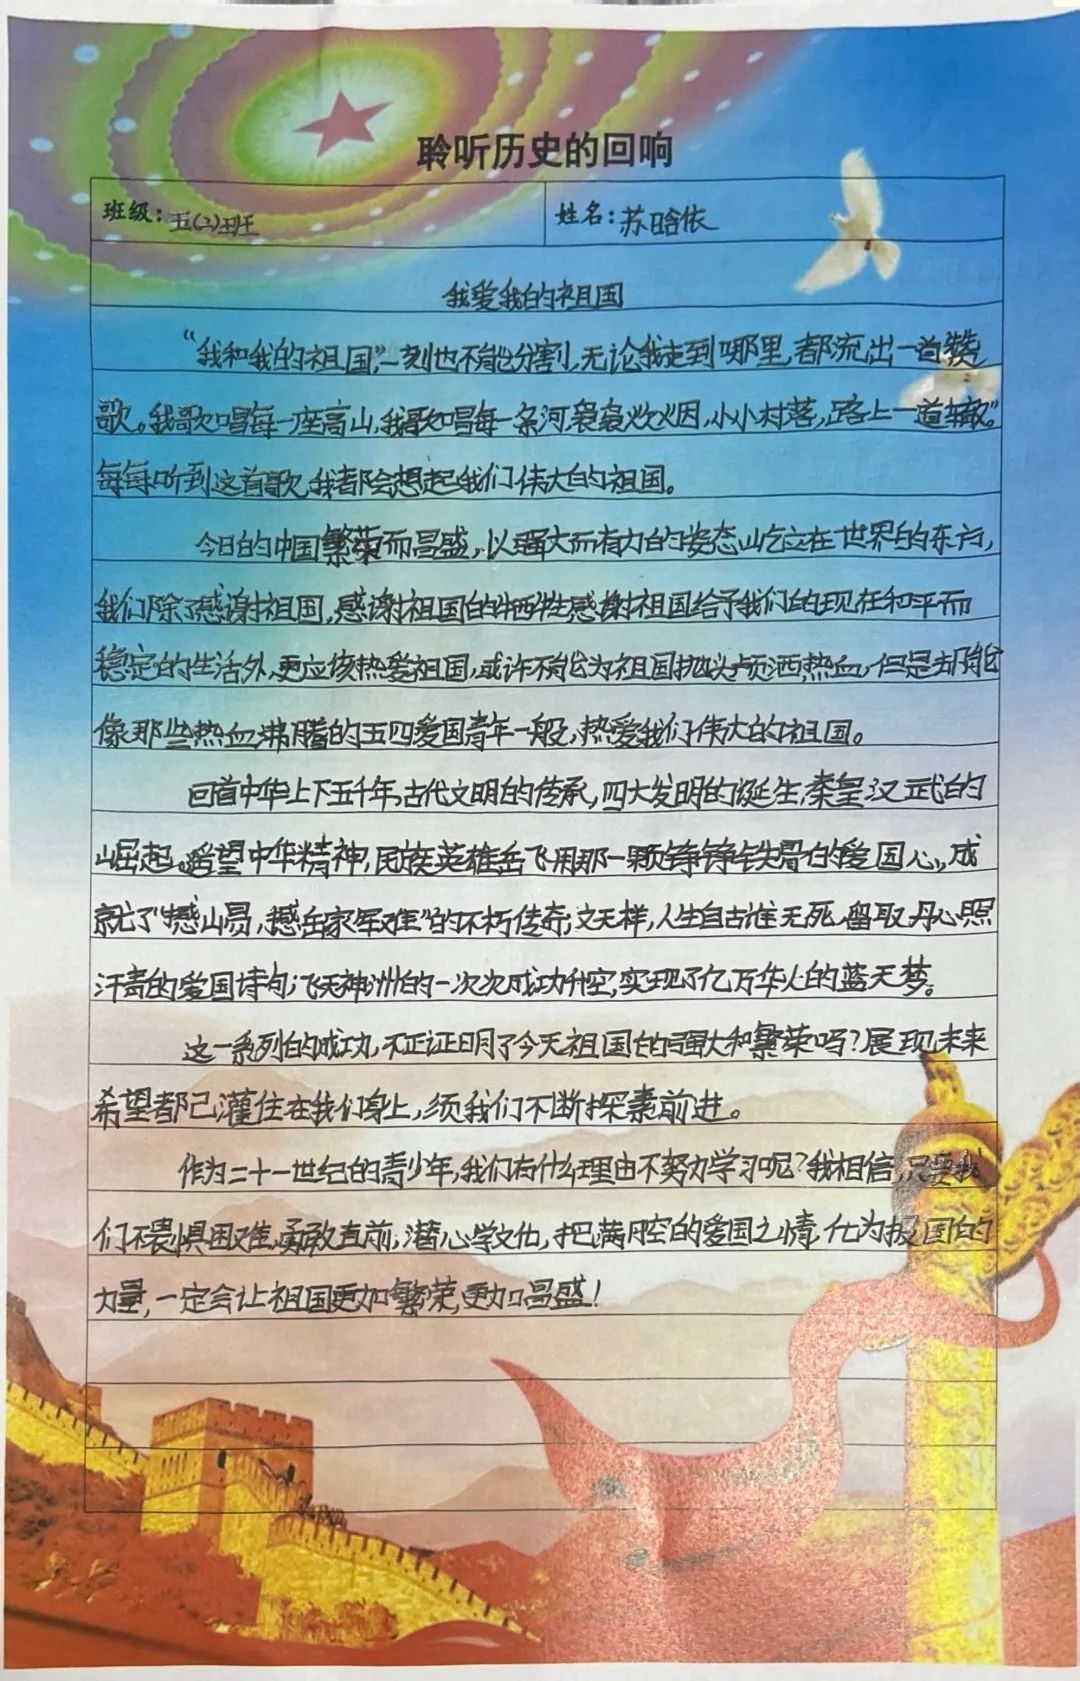 聆听历史的回响
班级：五(二)班
姓名：苏晗依
我爱我的祖国
“我和我的祖国”，一刻也不能分割，无论我走到哪里，都流出一首赞
歌。我歌唱每一座高山，我歌唱每一条河，袅袅炊烟，小小村落，路上一道辙。”
每每听到这首歌，我都会想起我们伟大的祖国。
今日的中国繁荣而昌盛，以强大而有力的姿态屹立在世界的东方，
我们除了感谢祖国，感谢祖国的牺牲感谢祖国给予我们的现在和平而
稳定的生活外，更应该热爱祖国，或许不能为祖国抛头颅洒热血，但是却能
像那些热血沸腾的五四爱国青年一般，热爱我们伟大的祖国。
回首中华上下五千年，古代文明的传承，四大发明的诞生，秦皇汉武的
崛起。遥望中华精神，民族英雄岳飞用那一颗铮铮铁骨的爱国心，成
就了“撼山易，撼岳家军难”的不朽传奇；文天样，人生自古谁无死，留取丹心照
汗青的爱国诗句；飞天神洲的一次次成功升空，实现了亿万华人的蓝天梦。
这一系列的成功，不正证明了今天祖国的强大和繁荣吗？展现未来
希望都已灌住在我们身上，须我们不断探索前进。
作为二十一世纪的青少年，我们有什么理由不努力学习呢？我相信，只要我
们不畏惧困难，勇敢直前，潜心学文化，把满腔的爱国之情，化为报国的
力量，一定会让祖国更加繁荣，更加昌盛！